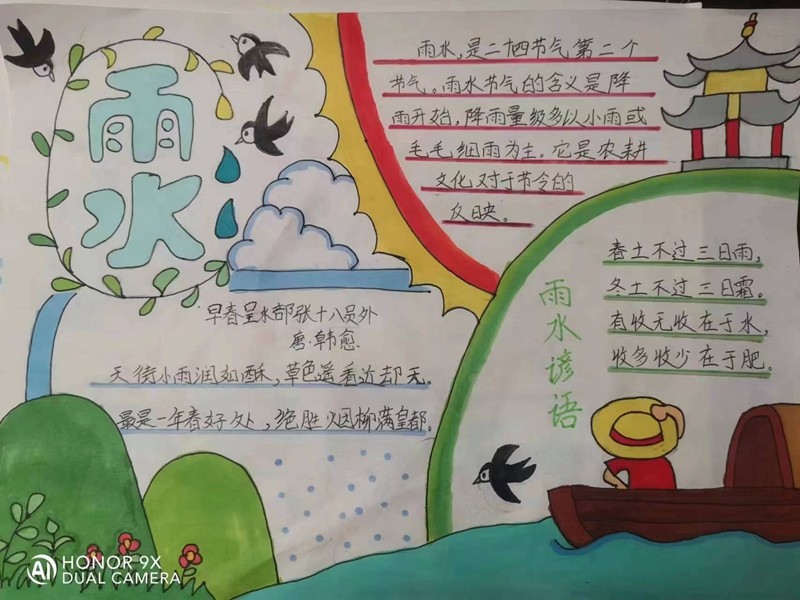 雨水
雨水,是二十四节气第二个
节气。雨水节气的含义是降
雨开始,降雨量级多以小雨或
毛毛细雨为主。它是农耕
文化对于节令的
反映。
早春呈水部张十八员外
唐·韩愈
天街小雨润如酥,草色遥看近却无。
最是一年春好处,绝胜烟柳满皇都。
雨水谚语
春土不过三日雨,
冬土不过三日霜。
有收无收在于水,
收多收少在于肥。
AI HONOR 9X
DUAL CAMERA